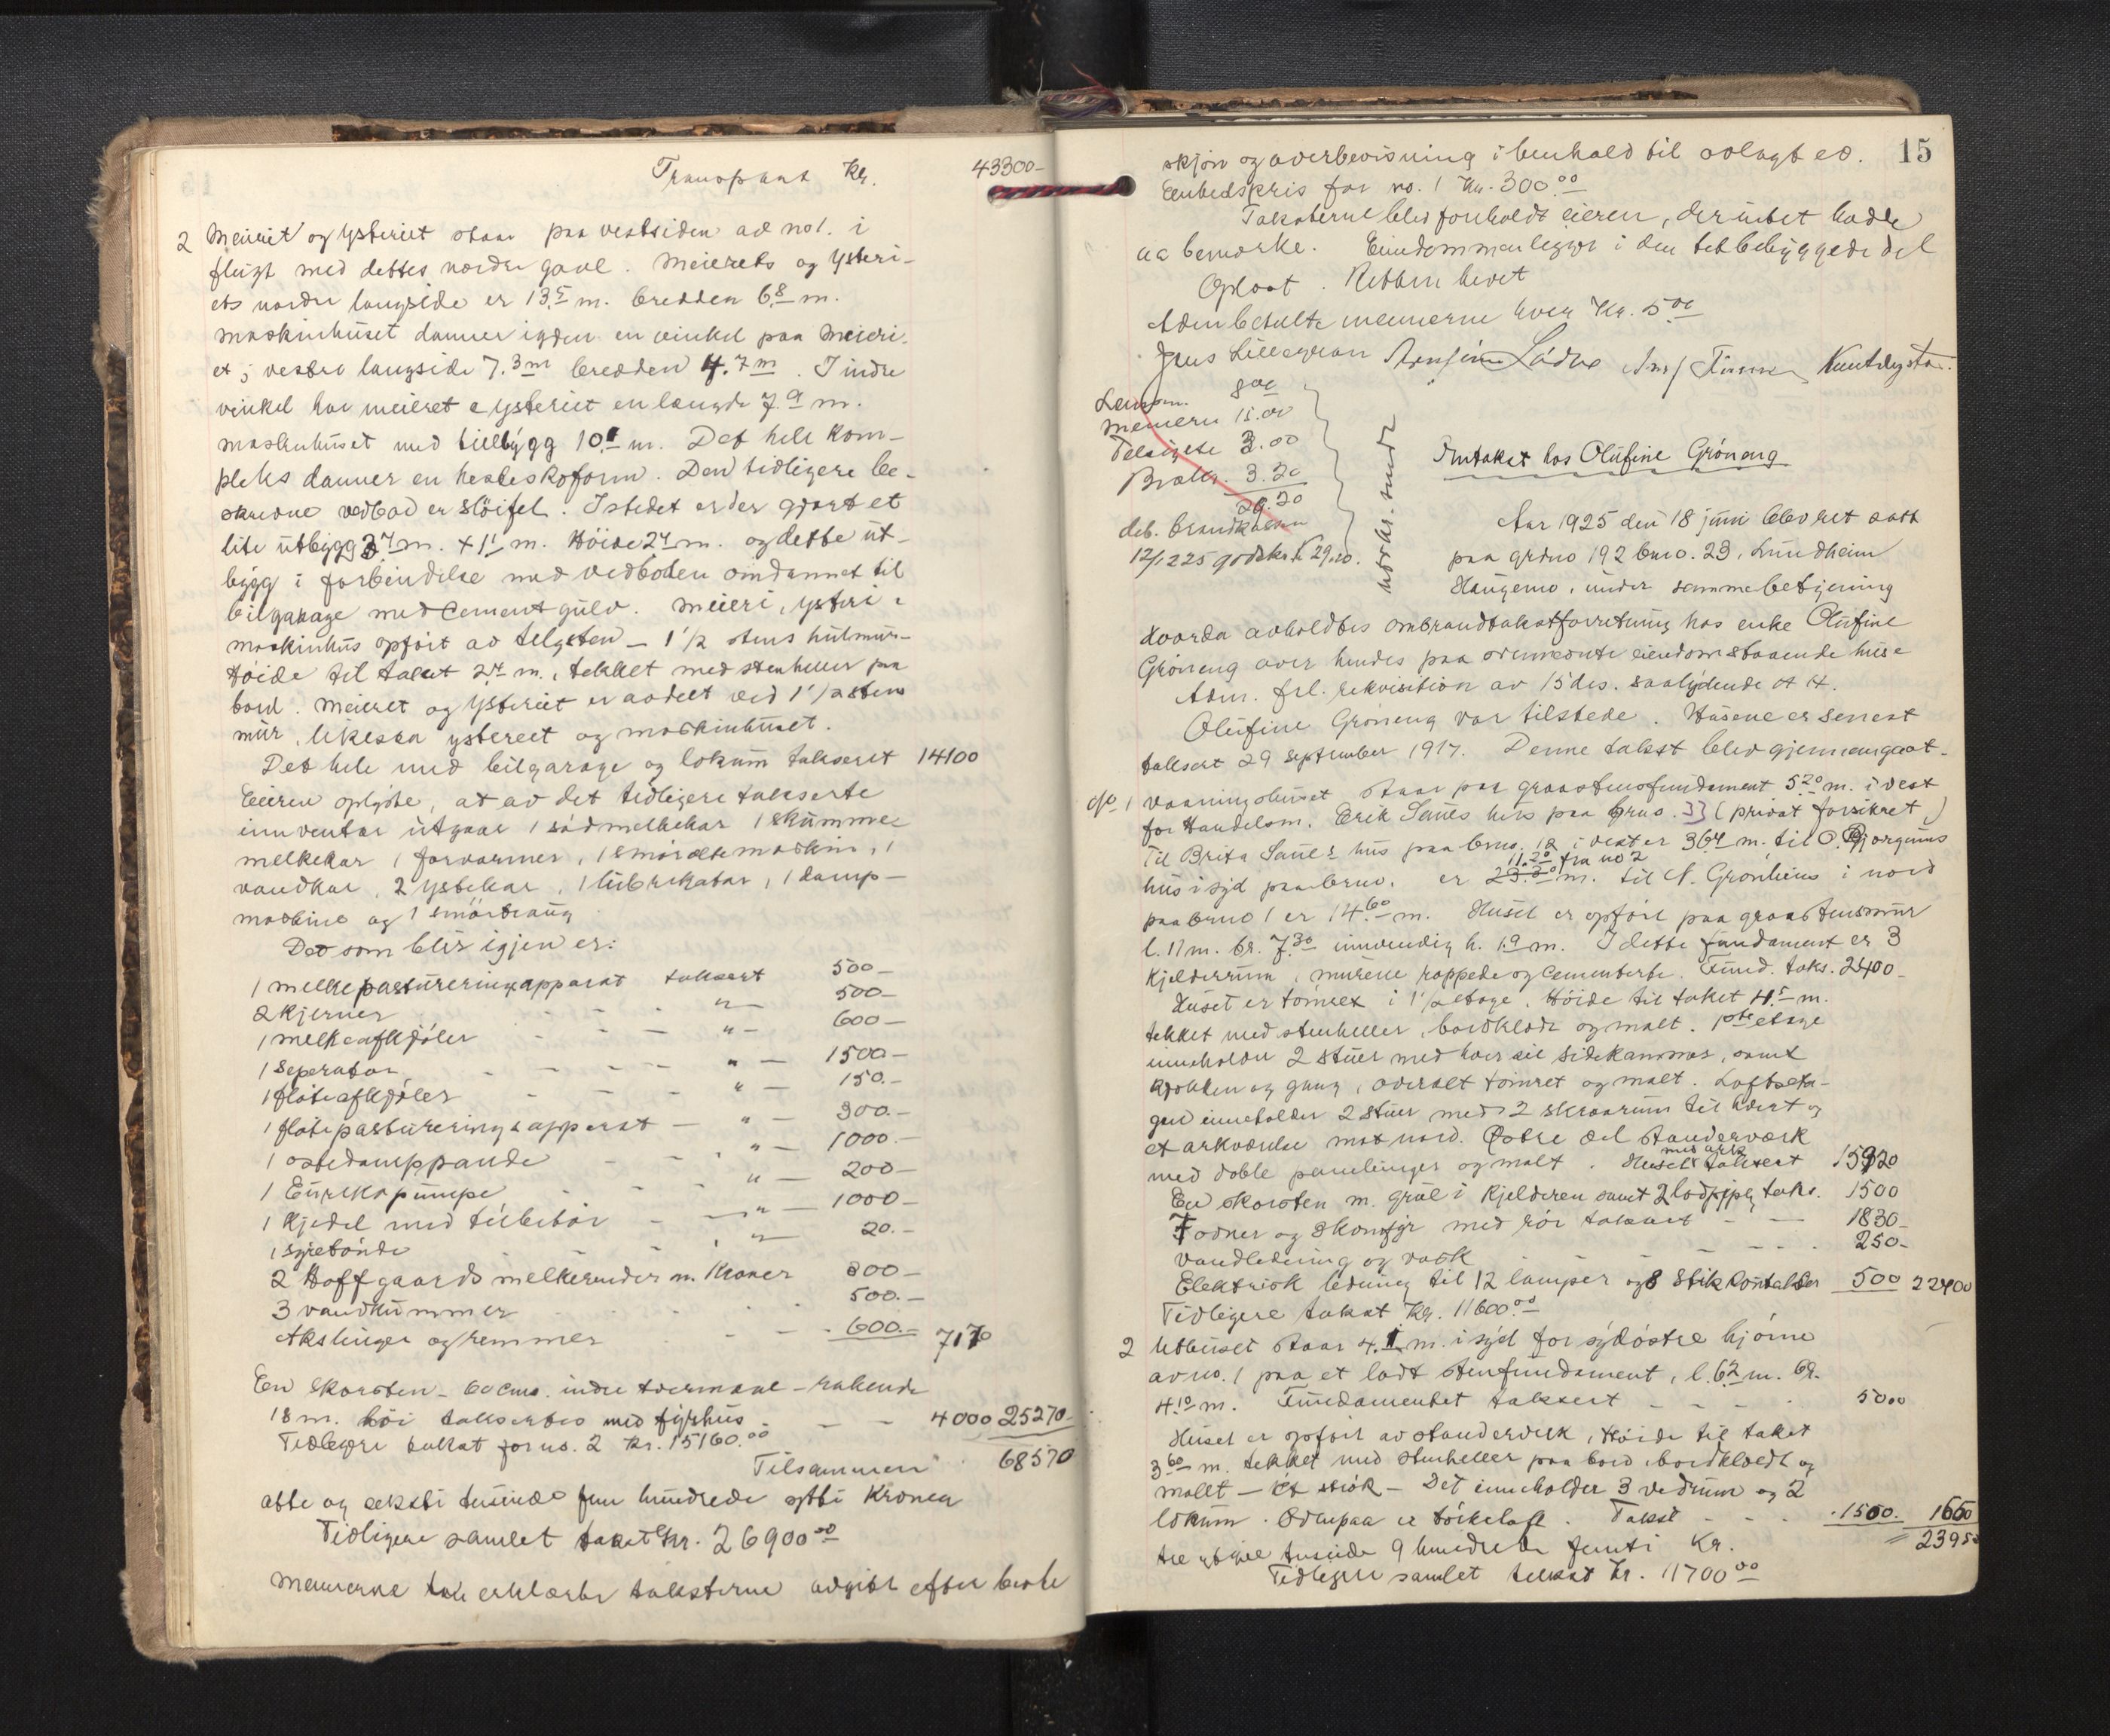 Transport Kr. 43300-
2 Meieriet og ysteriet staar paa vestsiden av no 1. i
flugt med dettes nordre gavl. Meieriets og ysteri-
ets nordre langside er 13.5 m. bredden 6.8 m.
maskinhuset danner igden en vinkel paa Meieri-
et; vestre langside 7.3 m bredden 4.7 m. I indre
vinkel har meieriet & ysteriet en længde 7.9 m.
maskinhuset med tilbygg 10. m. Det hele kom-
pleks danner en hesteskoform. Den tidligere be-
skrevne vedbod er sløifet. Istedet er der gjort et
lite utbygg m. x 1 m. Höide 2 m. og dette ut-
bygg i forbindelse med vedboden omdannet til
bilgarage med cementgulv. Meieri, ysteri &
maskinhus opført av telgsten - 1 1/2 stens hulmur-
Höide til taket 2.4 m., tekket med stenheller paa
bord. Meieriet og ysteriet er avdelt ved 1 1/2 stens
mur, likesaa ysteriet og maskinhuset.
Det hele med bilgarage og lokum takseret 14100
Eieren oplyste, at av det tidligere takserte
inventar utgaar 1 sødmelkekar 1 skumme-
melkekar 1 forvarmer, 1 smöreltemaskin, 1
vandkar, 2 ystekar, 1 lubrikator, 1 damp-
maskine og 1 smörtraug
Det som blir igjen er:
1 melkepastureringsapparat taksert 500-
2 kjerner " 500-
1 melkeafkjøler " 600-
1 Seperator " 1500-
1 fløteafkjøler " 150.-
1 fløtepastureringsapparat " 300.-
1 ostedamppande " 1000.-
1 Eurekapumpe " 200-
1 Kjedel med tilbehör " 1000-
1 syrebönde " 20.-
2 Hoffgaards melkerender m. Kraner 300-
3 vandkummer 500.-
Akslinger og remmer 600.- 7170
En Skorsten - 60 cms. indre tvermaal - rakende
18 m. höi takseres med fyrhus 4000 25270-
Tidligere takst for no. 2 Kr. 15160.00
Tilsammen 68570
otte og seksti tusinde fem hundrede sytti Kroner
Tidligere samlet takst Kr. 26900 00
Mennerne erklærte taksterne avgitt efter beste
15
skjøn og overbevisning i henhold til avlagt ed.
Enhedspris for no. 1 Kr. 300.00
Taksterne blev forholdt eieren, der intet hadde
aa bemerke. Eiendommen ligger i den tetbebyggede del
Oplæst. Retten hevet
Adm betalte mennerne hver Kr. 5 00
Jens Lillegraven Knut
8 00
mennerne 15.00
3.00
3.20
29.20
deb. brandkassen
12/1 225 godskr. K 29.20.
Omtakst hos Olufine Gröneng
Aar 1925 den 18 juni blev ret satt
paa grdno 192 bno. 23, Lundheim
Haugemo, under samme betjening
Hvorda avholdtes ombrandtakstforretning hos enke Olufine
Gröneng over hendes paa ovennævnte eiendom staaende huse
Adm. frl. rekvisition av 15 ds. saalydende
Olufine Gröneng var tilstede. Husene er senest
taksert 29 september 1917. Denne takst blev gjennemgaat-
1 Vaaningshuset staar paa graastensfundament 5.20 m. i vest
for Handelsm. Erik Sanes hus paa bruo. (privat forsikret)
Til Brita Sanes hus paa bruo. 12 i vest er m. til O. Bjorgums
11.20 fra no 2
hus i syd paa bruo. er m. til N. Grönliens i nord
paa bruo 1 er 14.60 m. Huset er opført paa graastensmur
l. 11 m. br. 7.30 innvendig h. 1.9 m. I dette fundament er 3
Kjelderrum, murene rappede og cementerte. Fund. taks. 2400-
Huset er tömret i 1 1/2 etage. Höide til taket 4.5 m.
tekket med stenheller, bordklædt og malt. 1ste etage
inneholder 2 stuer med hver sit sidekammer, samt
kjökken og gang, overalt tömret og malt. Loftseta-
gen inneholder 2 stuer med 2 skraarum til hvert og
et arkværelse mot nord. Östre del standerværk
med ark
med doble panelinger og malt. Huset taksert 15920
En skorsten m. grue i kjelderen samt 2 lodpiper taks. 1500
7 ovner og 2 komfyr med rör taksert 1830-
Vandledning og vask 250-
Elektrisk ledning til 12 lamper og 8 Stikkontakter 500 22400
Tidligere takst Kr. 11600.00
2 Uthuset staar 4. m. i syd for sydöstre hjörne
av no. 1 paa et lodt stenfundament, l. 6.2 m. br.
4.10 m. Fundamentet taksert 50 00
Huset er opfört av standerverk, Höide til taket
3.60 m. tekket med stenheller paa bord, bordklædt og
mallt - et strök - Det inneholder 3 vedrum og 2
lokum. Ovenpaa er törkeloft. Takst 1500. 1550
tre og tjue tusinde 9 hundrede femti Kr. 23950
Tidligere samlet takst Kr. 11700 00